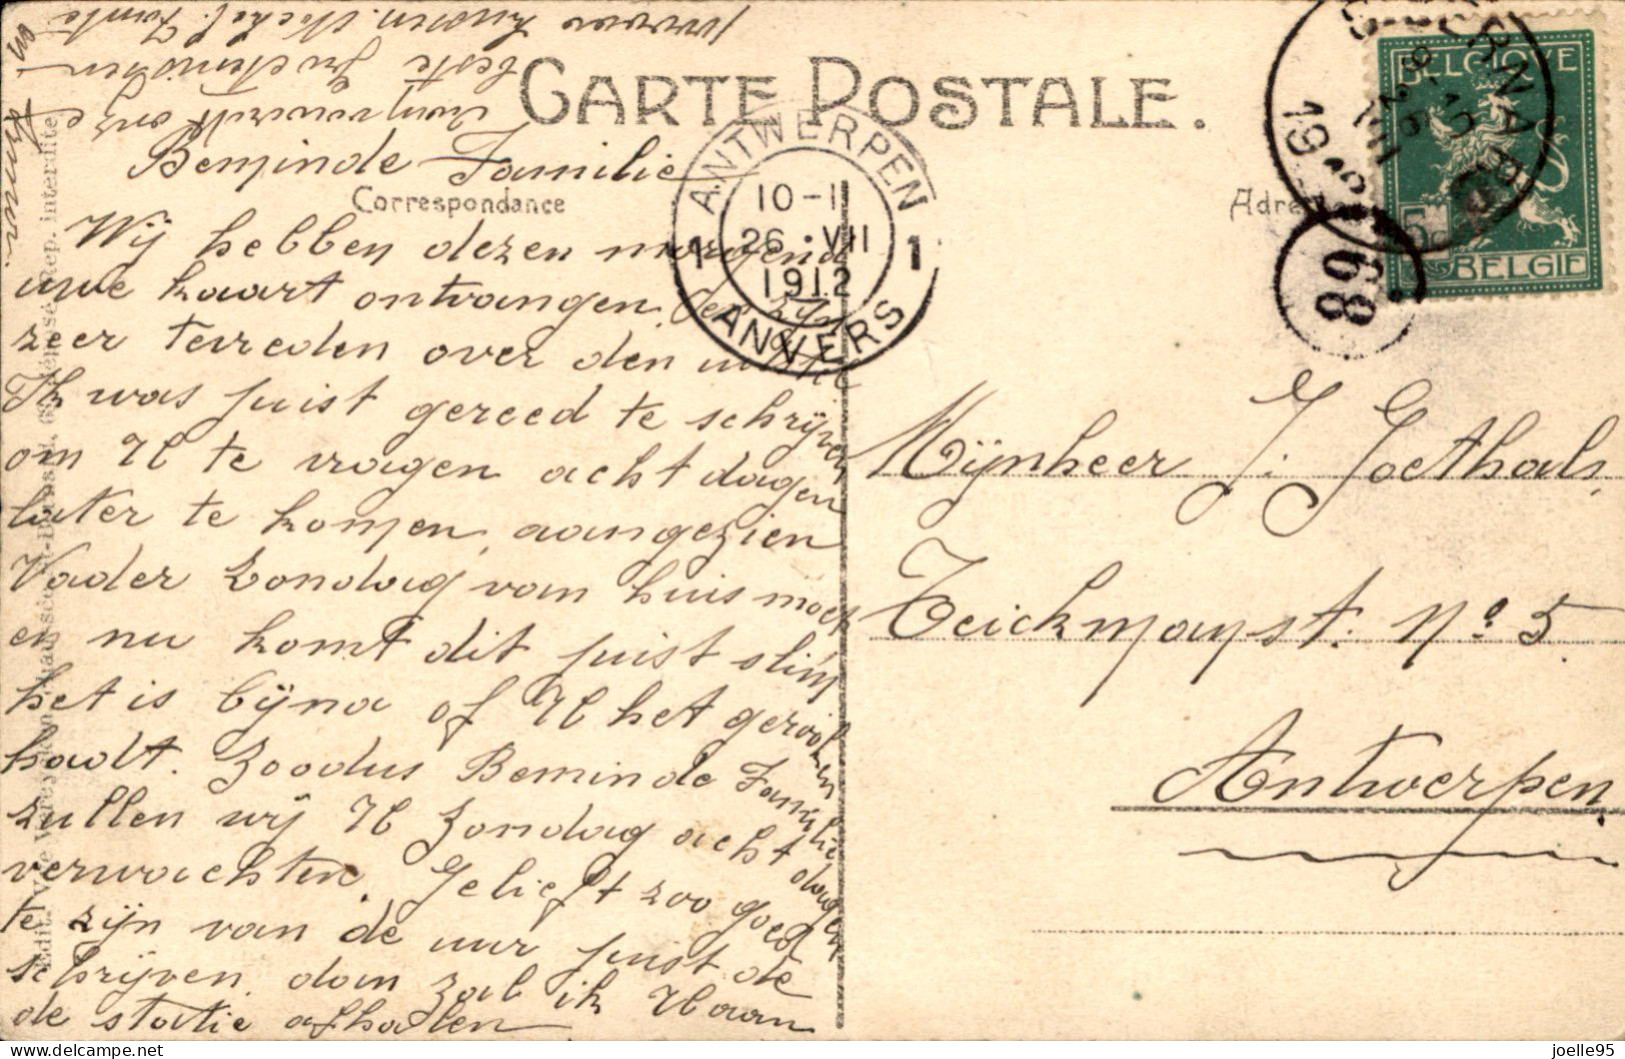 CARTE POSTALE.
Correspondance
Adre
BELGIQUE
BELGIE
5c
19
68
ANTWERPEN
10-11
26·VII
1912
1 1
ANVERS
Beminde Familie
Wij hebben dezen morgend
uwe kaart ontvangen, zijn
zeer tevreden over den
Ik was juist gereed te schrijven
om U te vragen acht dagen
later te komen, aangezien
Vader Zondag van huis moet
en nu komt dit juist slim
het is bijna of U het geroken
hadt. Zoodus Beminde Familie
zullen wij U Zondag acht dagen
verwachten. Gelieft zoo goed
te zijn van de uur juist de
schrijven dan zal ik U aan
de statie afhalen
aanvaardt onze
beste groetenissen
en
Mijnheer J. Goethals,
Teickmanst. No 5
Antwerpen.
Rep. interdite
joelle95